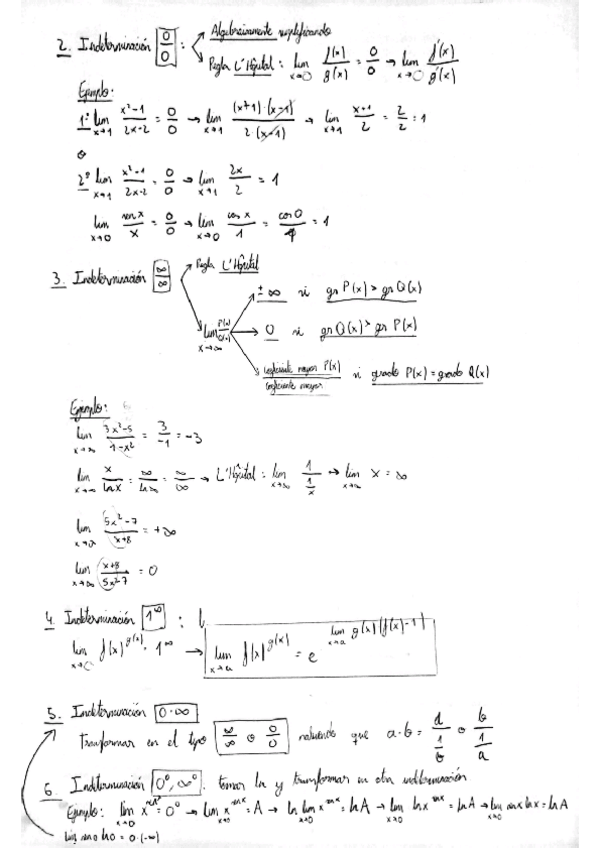 2. Indeterminación 0/0 : Algebraicamente simplificando
Regla L'Hôpital: lim x→0 f(x)/g(x) = 0/0 → lim x→0 f'(x)/g'(x)
Ejemplo:
1º lim x→1 x²-1/2x-2 = 0/0 → lim x→1 (x+1)·(x-1)/2·(x-1) → lim x→1 x+1/2 = 2/2 = 1
o
2º lim x→1 x²-1/2x-2 = 0/0 → lim x→1 2x/2 = 1
lim x→0 sen x/x = 0/0 → lim x→0 cos x/1 = cos 0/1 = 1
3. Indeterminación ∞/∞ Regla L'Hôpital
lim x→∞ P(x)/Q(x)
± ∞ si gr P(x) > gr Q(x)
0 si gr Q(x) > gr P(x)
coeficiente mayor P(x)/coeficiente mayor si grado P(x) = grado Q(x)
Ejemplo:
lim x→∞ 3x²-5/1-x² = 3/-1 = -3
lim x→∞ x/ln x = ∞/ln ∞ = ∞/∞ → L'Hôpital: lim x→∞ 1/(1/x) → lim x→∞ x = ∞
lim x→∞ 5x²-7/x+8 = +∞
lim x→∞ x+8/5x²-7 = 0
4. Indeterminación 1^∞ :
lim f(x)^g(x) = 1^∞ → lim x→a f(x)^g(x) = e^lim x→a g(x)(f(x)-1)
5. Indeterminación 0·∞
Transformar en el tipo ∞/∞ o 0/0 haciendo que a·b = a/(1/b) o b/(1/a)
6. Indeterminación 0⁰, ∞⁰. tomar ln y transformar en otra indeterminación
Ejemplo: lim x→0 x^sen x = 0⁰ → lim x→0 x^sen x = A → ln lim x→0 x^sen x = ln A → lim x→0 ln x^sen x = ln A → lim x→0 sen x ln x = ln A
lim sen 0 ln 0 = 0·(-∞)